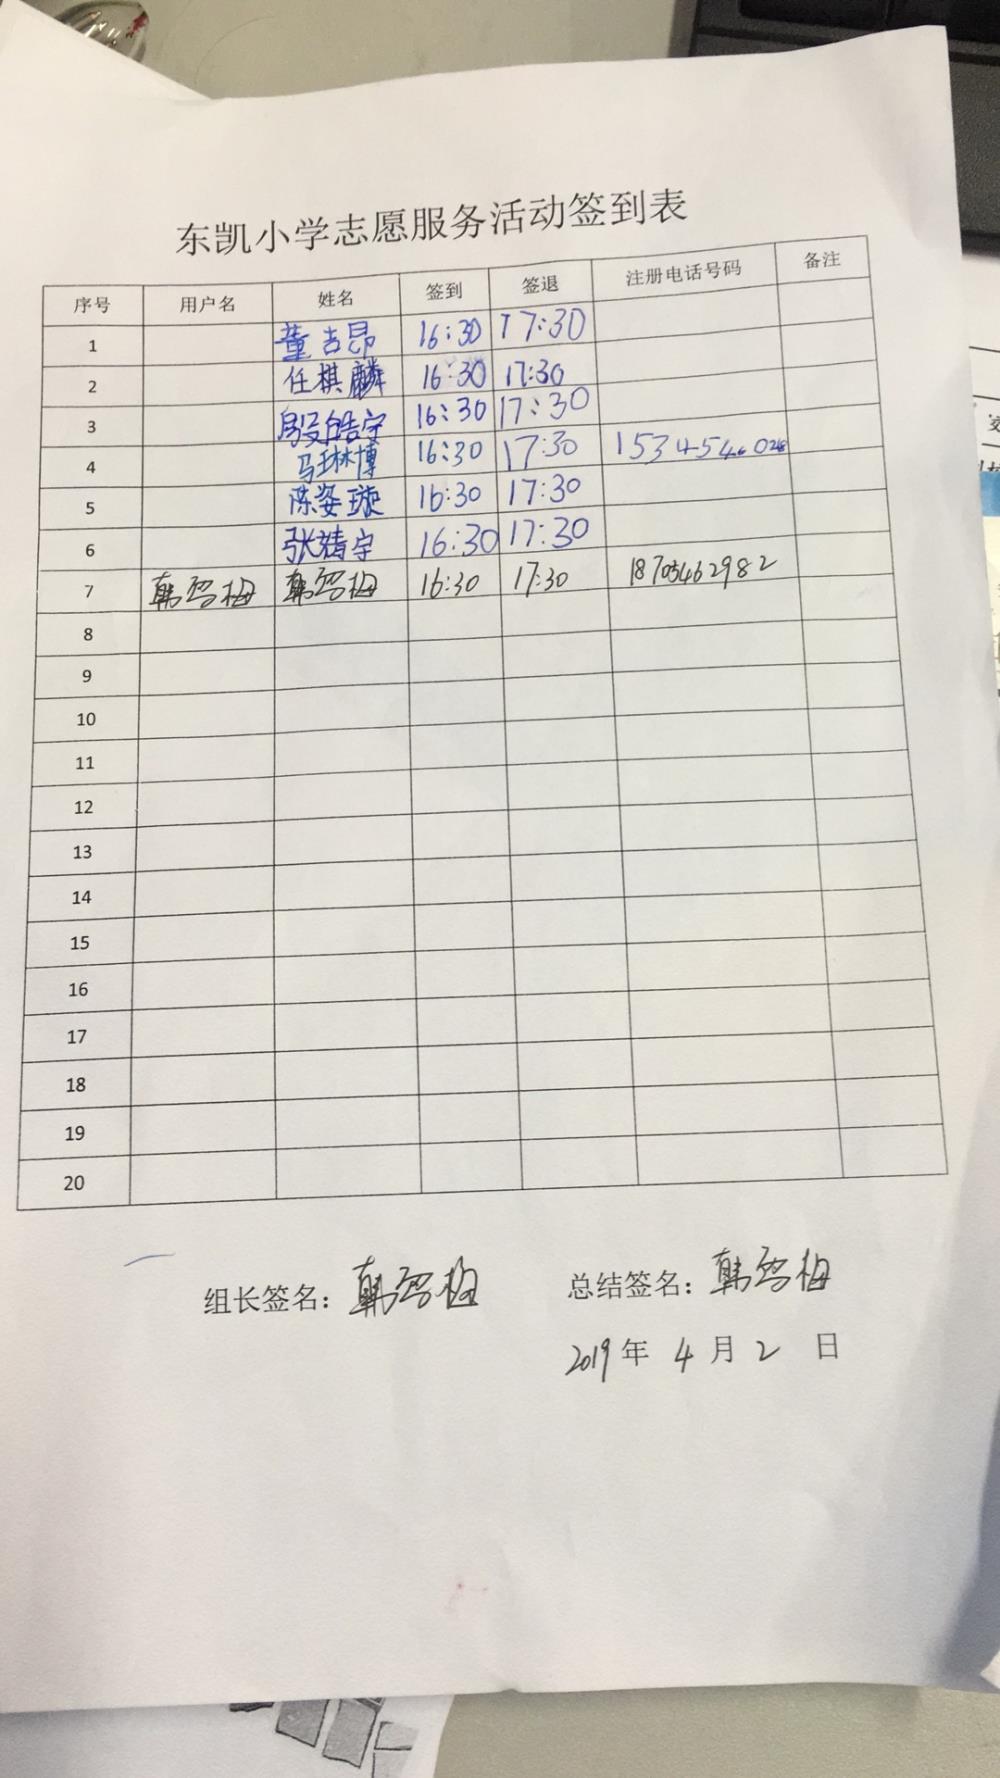 东凯小学志愿服务活动签到表
序号 用户名 姓名 签到 签退 注册电话号码 备注
1 董吉昂 16:30 17:30
2 任棋麟 16:30 17:30
3 殷皓宇 16:30 17:30
4 马琳博 16:30 17:30
5 陈姿璇 16:30 17:30
6 张靖宇 16:30 17:30
7 韩雪梅 韩雪梅 16:30 17:30 18705462982
8
9
10
11
12
13
14
15
16
17
18
19
20
组长签名：韩雪梅 总结签名：韩雪梅
2019年 4 月 2 日